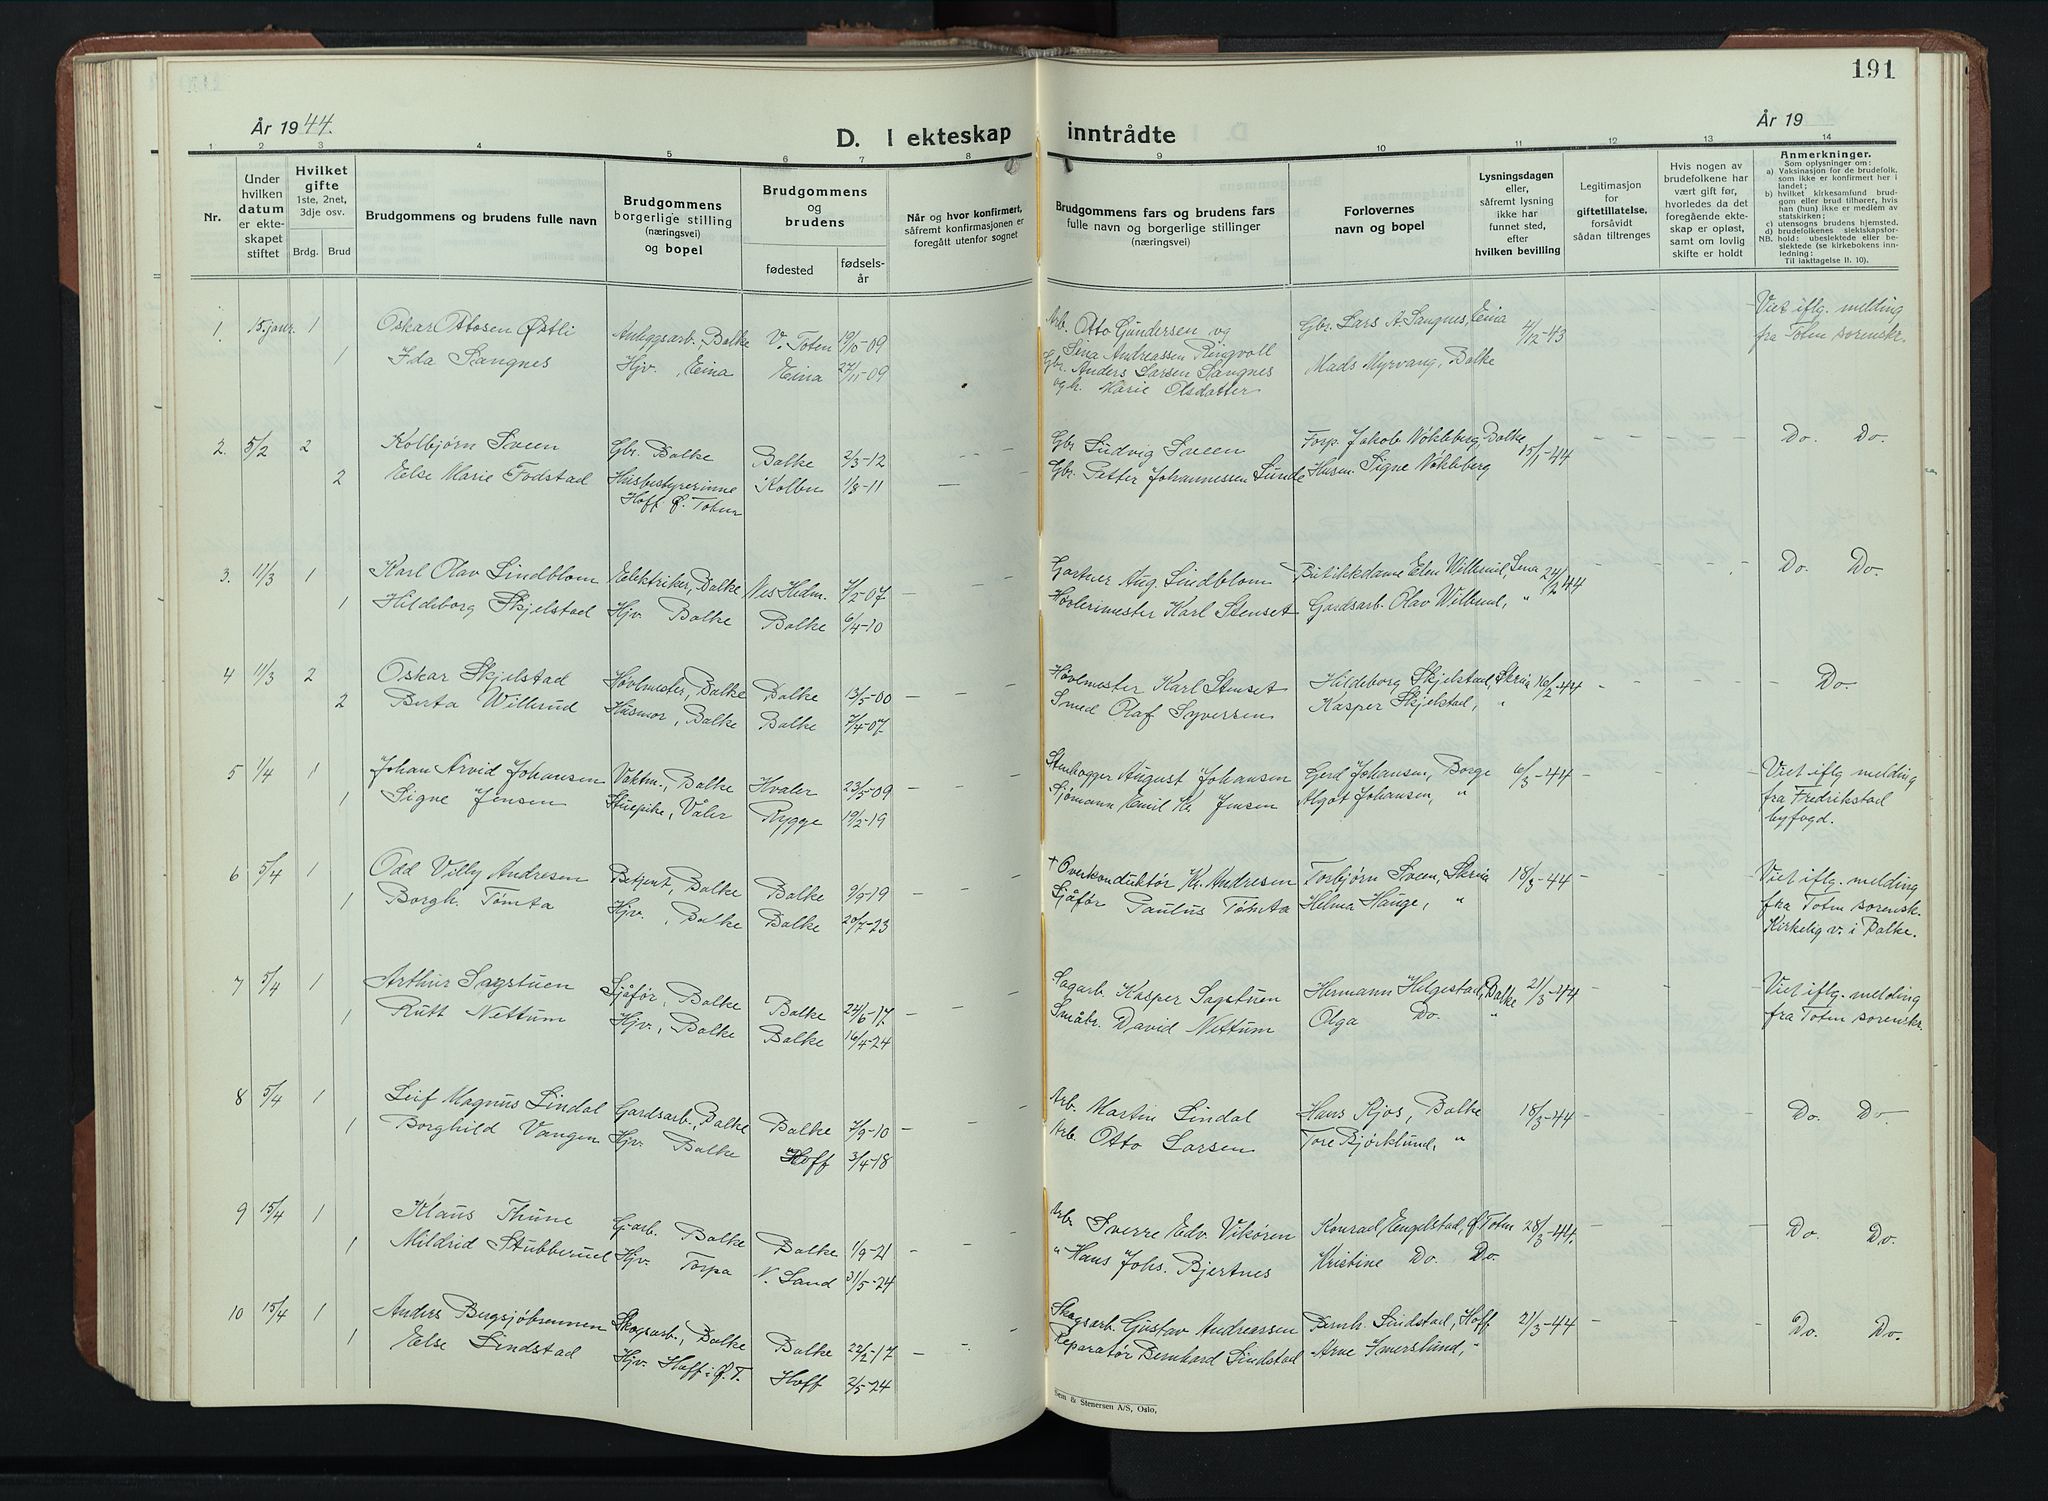 191
År 1944.
D. I ekteskap inntrådte
År 19
1 2 3 4 5 6 7 8 9 10 11 12 13 14
Nr.
Under hvilken datum er ekteskapet stiftet
Hvilket gifte 1ste, 2net, 3dje osv.
Brdg. Brud
Brudgommens og brudens fulle navn
Brudgommens borgerlige stilling (næringsvei) og bopel
Brudgommens og brudens
fødested
fødselsår
Når og hvor konfirmert, såfremt konfirmasjonen er foregått utenfor sognet
Brudgommens fars og brudens fars fulle navn og borgerlige stillinger (næringsvei)
Forlovernes navn og bopel
Lysningsdagen eller, såfremt lysning ikke har funnet sted, efter hvilken bevilling
Legitimasjon for giftetillatelse, forsåvidt sådan tiltrenges
Hvis nogen av brudefolkene har vært gift før, hvorledes da det foregående ekteskap er opløst, samt om lovlig skifte er holdt
Anmerkninger.
Som oplysninger om:
a) Vaksinasjon for de brudefolk, som ikke er konfirmert her i landet;
b) hvilket kirkesamfund brudgom eller brud tilhører, hvis han (hun) ikke er medlem av statskirken;
c) utensogns brudens hjemsted.
d) brudefolkenes slektskapsforhold: ubeslektede eller beslektede (se kirkebokens innledning;
NB. Til iakttagelse ll. 10).
1 15. janr. 1 Oskar Ottosen Østli Anleggsarb. Balke V. Toten 19/10-09 Arb. Otto Gundersen og Gbr. Lars A. Sangnes, Eina 4/12-43 Viet iflg. melding
Sina Andreassen Ringvoll fra Toten sorenskr.
1 Ida Sangnes Hjv., Eina Eina 27/11-09 Gbr. Anders Larsen Sangnes Mads Myrvang, Balke
og h. Marie Olsdatter
2. 5/2 2 Kolbjørn Sveen Gbr. Balke Balke 2/3-12 Gbr Ludvig Sveen Forp. Jakob Nøkleberg, Balke 15/1-44 Do. Do.
2 Else Marie Fodstad Husbestyrerinne Kolbu 1/3-11 Gbr. Petter Johannessen Lunde Husm. Signe Nøkleberg
Hoff Ø. Toten
3. 11/3 1 Karl Olav Lindblom Elektriker, Balke Nes Hedm. 7/2-07 Gartner Aug. Lindblom Butikkdame Elen Willerud, Lena 24/2-44 Do. Do.
1 Hildeborg Skjelstad Hjv. Balke Balke 6/4-10 Høvlerimester Karl Stenset Gardsarb. Olav Willerud, "
4 11/3 2 Oskar Skjelstad Høvlmester, Balke Balke 13/5-00 Høvlmester Karl Stenset Hildeborg Skjelstad, Skreia 16/2-44 Do.
2 Berta Willerud Husmor, Balke Balke 7/4-07 Smed Olaf Syversen Kasper Skjelstad, "
5 1/4 1 Johan Arvid Johansen Vaktm., Balke Hvaler 23/5-09 Stenhogger August Johansen Gerd Johansen, Borge 6/3-44 Viet iflg. melding
1 Signe Jensen Stuepike, Våler Rygge 19/2-19 Sjømann Emil Kr. Jensen Algot Johansen, " fra Fredrikstad
byfogd.
6 5/4 1 Odd Villy Andresen Betjent, Balke Balke 9/9-19 + Overkonduktør Kr. Andresen Torbjørn Sveen, Skreia 18/3-44 Viet iflg. melding
1 Borgh. Tømta Hjv., Balke Balke 20/7-23 Sjåfør Paulus Tømta Helma Hauge, " fra Toten sorensk.
Kirkelig v. i Balke.
7 5/4 1 Arthur Sagstuen Sjåfør, Balke Balke 24/6-17 Sagarb. Kasper Sagstuen Hermann Helgestad, Balke 21/3-44 Viet iflg. melding
1 Rutt Nettum Hjv., Balke Balke 16/4-24 Småbr. David Nettum Olga Do. " fra Toten sorenskr.
8 5/4 1 Leif Magnus Lindal Gardsarb., Balke Balke 7/9-10 Arb. Martin Lindal Hans Kjos, Balke 18/3-44 Do. Do
1 Borghild Vangen Hjv. Balke Hoff 3/4-18 Arb. Otto Larsen Tore Bjørklund, "
9 15/4 1 Klaus Thune G.arb. Balke Balke 1/9-21 Arb Sverre Edv. Vikøren Konrad Engelstad, Ø. Toten 28/3-44. Do. Do.
1 Mildrid Stubberud Hjv. Torpa N. Land 31/5-24 " Hans Johs. Bjertnes Kristine Do. Do.
10 15/4 1 Anders Bugsjøbrennen Skogsarb., Balke Balke 22/2-17 Skogsarb. Gustav Andreassen Bernh. Lindstad, Hoff 21/3-44 Do. Do.
1 Else Lindstad Hjv. Hoff i Ø. T. Hoff 2/5-24 Reparatør Bernhard Lindstad Arne Smerslund, "
Sem & Stenersen A/S, Oslo.